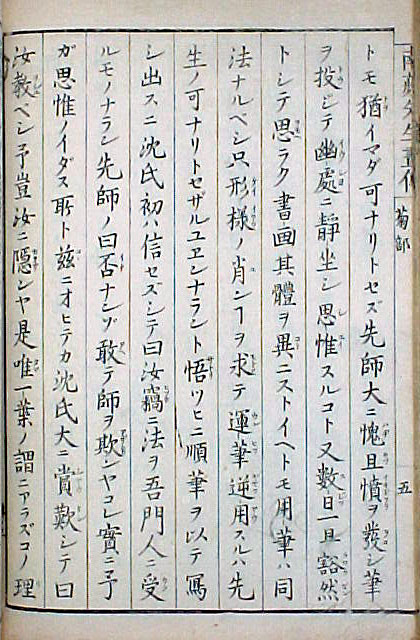 トモ猶イマダ可ナリトセズ先師大ニ愧且憤ヲ發シ筆
ヲ投シテ幽處ニ靜坐シ思惟スルコト又數日一旦豁然
トシテ思ラク書画其體ヲ異ニストイヘトモ用筆ハ同
法ナルベシ只形様ノ肖シーヲ求テ運筆逆用スルハ先
生ノ可ナリトセザルユヱンナラント悟ツヒニ順筆ヲ以テ寫
シ出スニ沈氏初ハ信セズシテ曰汝竊ニ法ヲ吾門人ニ受
ルモノナラン先師ノ曰否ナンゾ敢テ師ヲ欺ンヤコレ實ニ予
ガ思惟ノイダス所ト茲ニオヒテカ沈氏大ニ賞歎シテ曰
汝教ベシ予豈汝ニ隠シヤ是唯一葉ノ謂ニアラズコノ理
菊部
五